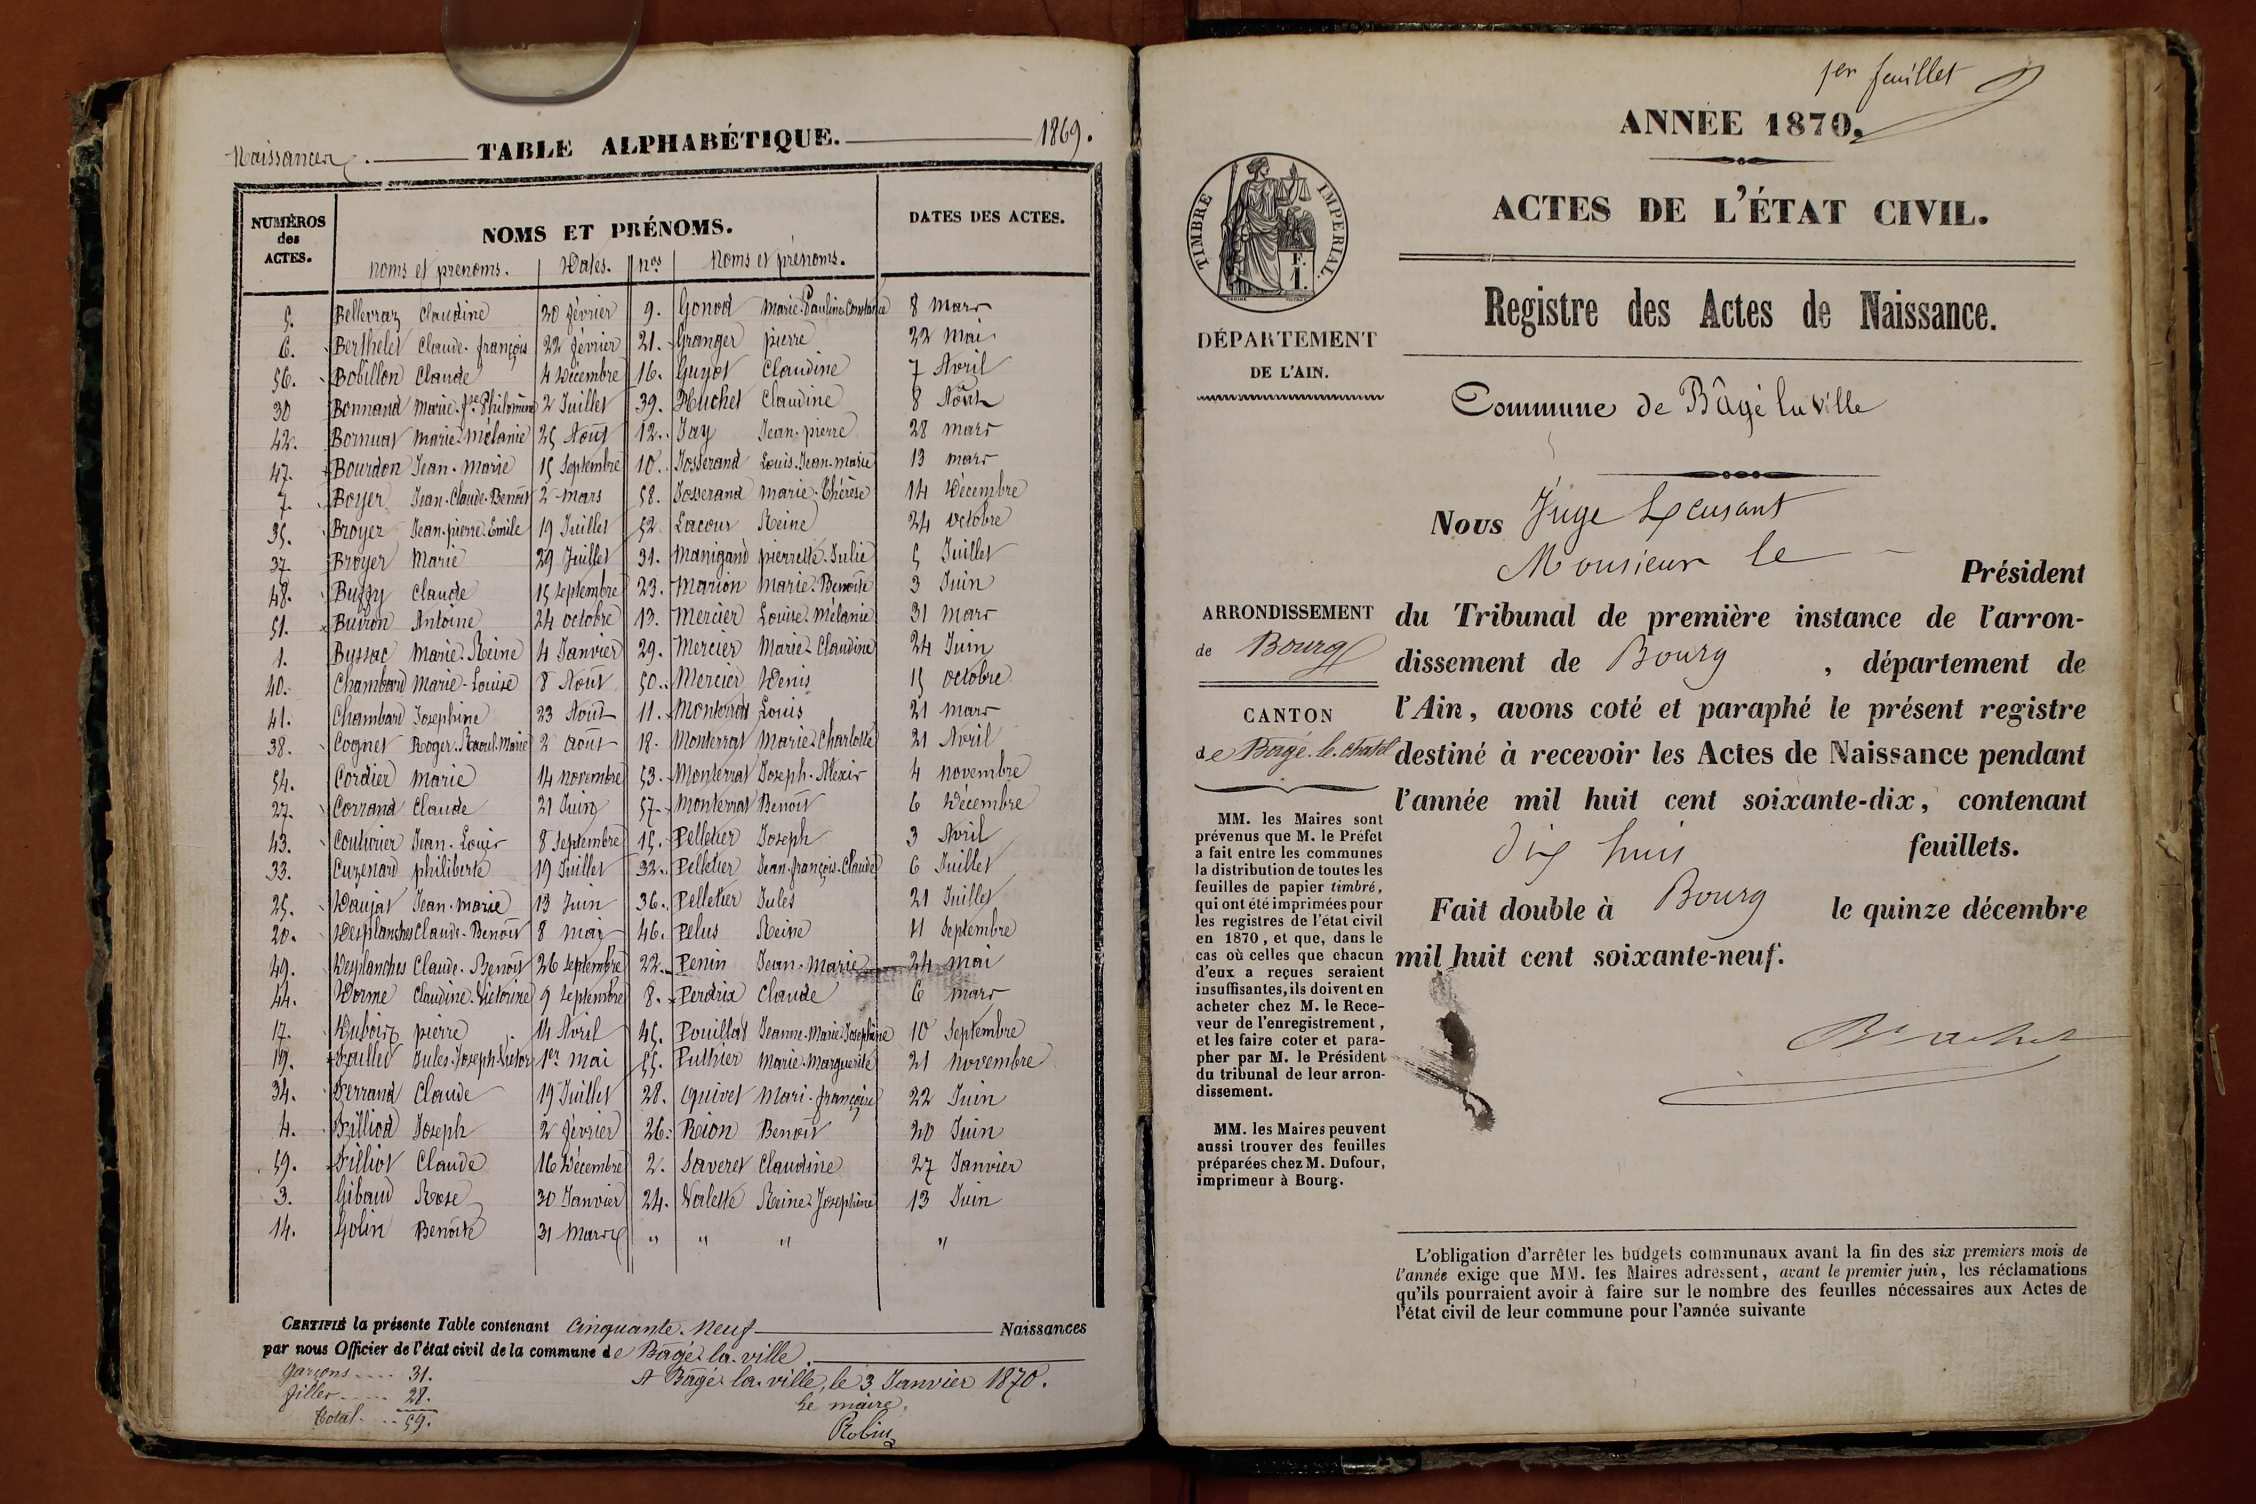 Naissances. TABLE ALPHABÉTIQUE. 1869.
NUMÉROS des ACTES. NOMS ET PRÉNOMS. DATES DES ACTES.
Noms et prénoms. Dates. nos Noms et prénoms.
5. Bellevraz Claudine 20 février 9. Gonod Marie-Pauline-Constance 8 Mars
6. Berthelet Claude-françois 22 février 21. Granger pierre 22 Mai
56. Bobillon Claude 4 Décembre 16. Guyot Claudine 7 Avril
30 Bonnand Marie-Jne-Philomène 2 Juillet 39. Huchet Claudine 8 Août
42. Bornuat Marie-Mélanie 25 Août 12. Jay Jean-pierre 28 mars
47. Bourdon Jean-Marie 15 Septembre 10. Josserand Louis-Jean-Marie 13 mars
7. Boyer Jean-Claude-Benoît 2 mars 58. Josserand Marie-Thérèse 14 Décembre
35. Broyer Jean-pierre-Emile 19 Juillet 52 Lacour Reine 24 octobre
37 Broyer Marie 29 Juillet 31. Manigand pierrette-Julie 5 Juillet
48. Buffy Claude 15 septembre 23. Marion Marie-Benoîte 3 Juin
51. Buiron Antoine 24 octobre 13. Mercier Louise-Mélanie 31 Mars
1. Byssac Marie-Reine 4 Janvier 29. Mercier Marie-Claudine 24 Juin
40. Chambard Marie-Louise 8 Août 50. Mercier Denis 15 octobre
41. Chambard Josephine 23 Août 11. Monterrat Louis 21 mars
38. Cognet Roger-Raoul-Marie 2 août 18. Monterrat Marie-Charlotte 21 Avril
54. Cordier Marie 14 novembre 53. Monterrat Joseph-Alexis 4 novembre
27. Corrand Claude 21 Juin 57. Monterrat Benoît 6 Décembre
43. Couturier Jean-Louis 8 Septembre 15. Pelletier Joseph 3 Avril
33. Cuzenard philiberte 19 Juillet 32. Pelletier Jean-françois-Claude 6 Juillet
25. Daujat Jean-Marie 13 Juin 36. Pelletier Jules 21 Juillet
20. Desplanches Claude-Benoît 8 mai 46. Pelus Reine 11 Septembre
49. Desplanches Claude-Benoît 26 septembre 22. Penin Jean-Marie 24 mai
44. Dorme Claudine-Victorine 9 Septembre 8. Perdrix Claude 6 mars
17. Dubois pierre 14 Avril 45. Pouillat Jeanne-Marie-Josephine 10 Septembre
19. Faullet Jules-Joseph-Victor 1er mai 55. Puthier Marie-Marguerite 21 novembre
34. Ferrand Claude 19 Juillet 28. Quivet Mari-françoise 22 Juin
4. Filliod Joseph 2 février 26. Rion Benoît 20 Juin
59. Filliot Claude 16 Décembre 2. Saveret Claudine 27 Janvier
3. Gibaud Rose 30 Janvier 24. Valette Reine-Josephine 13 Juin
14. Golin Benoîte 31 Mars " " " "
CERTIFIÉ la présente Table contenant Cinquante-Neuf Naissances
par nous Officier de l'état civil de la commune de Bâgé-la-ville.
garçons 31. A Bâgé-la-ville, le 3 Janvier 1870.
filles 28. Le maire,
Total 59. Robin
1er feuillet
ANNÉE 1870.
ACTES DE L'ÉTAT CIVIL.
TIMBRE IMPERIAL.
F.
1.
Registre des Actes de Naissance.
DÉPARTEMENT
DE L'AIN.
Commune de Bâgé la ville
Nous Juge Excusant
Monsieur le Président
du Tribunal de première instance de l'arron-
dissement de Bourg, département de
l'Ain, avons coté et paraphé le présent registre
destiné à recevoir les Actes de Naissance pendant
l'année mil huit cent soixante-dix, contenant
dix huit feuillets.
Fait double à Bourg le quinze décembre
mil huit cent soixante-neuf.
ARRONDISSEMENT
de Bourg
CANTON
de Bâgé-le-Chatel
MM. les Maires sont
prévenus que M. le Préfet
a fait entre les communes
la distribution de toutes les
feuilles de papier timbré,
qui ont été imprimées pour
les registres de l'état civil
en 1870, et que, dans le
cas où celles que chacun
d'eux a reçues seraient
insuffisantes, ils doivent en
acheter chez M. le Rece-
veur de l'enregistrement,
et les faire coter et para-
pher par M. le Président
du tribunal de leur arron-
dissement.
MM. les Maires peuvent
aussi trouver des feuilles
préparées chez M. Dufour,
imprimeur à Bourg.
L'obligation d'arrêter les budgets communaux avant la fin des six premiers mois de
l'année exige que MM. les Maires adressent, avant le premier juin, les réclamations
qu'ils pourraient avoir à faire sur le nombre des feuilles nécessaires aux Actes de
l'état civil de leur commune pour l'année suivante